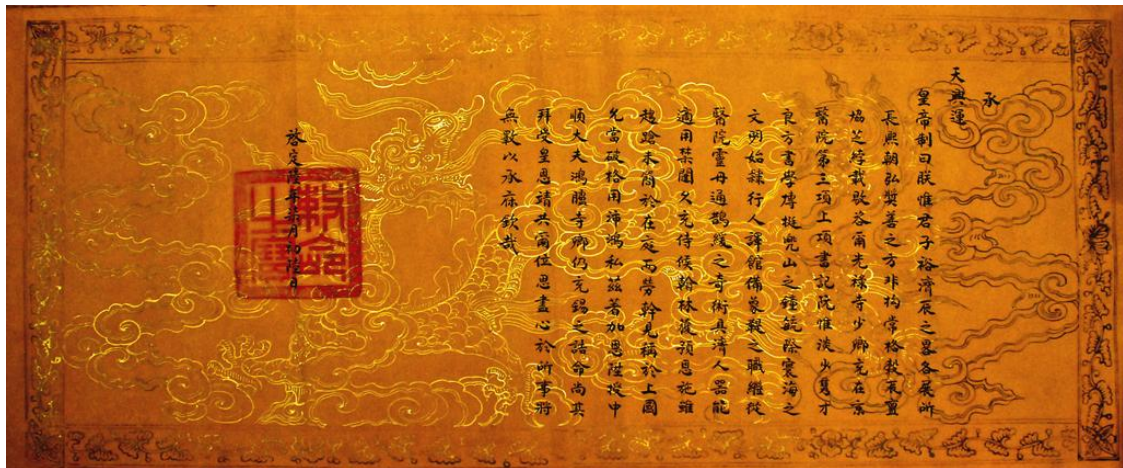 承
天興運
皇帝制曰朕惟君子裕濟辰之畧各展所
長熙朝弘奬善之方非拘常格穀夜亶
芝綍載啟咨爾光祿寺少卿充在京
醫院第三項上項書記阮惟淡少隽才
良方書學

文明始隸行人譯館備象鞮之職繼從
醫院靈丹通鵲緩之奇術具濟人器能
適用禁闥久充侍候翰林復預恩施雖
趨蹌本商於在寔而勞幹見稱於上國
允當破格用沛鴻私茲著加恩陞授中
順大夫鴻臚寺卿仍充錫之誥命尚其
拜受皇恩靖共爾位思盡心於所事將
無斁以承庥欽哉
啓定陸年柒月初陸日
敕命之寶